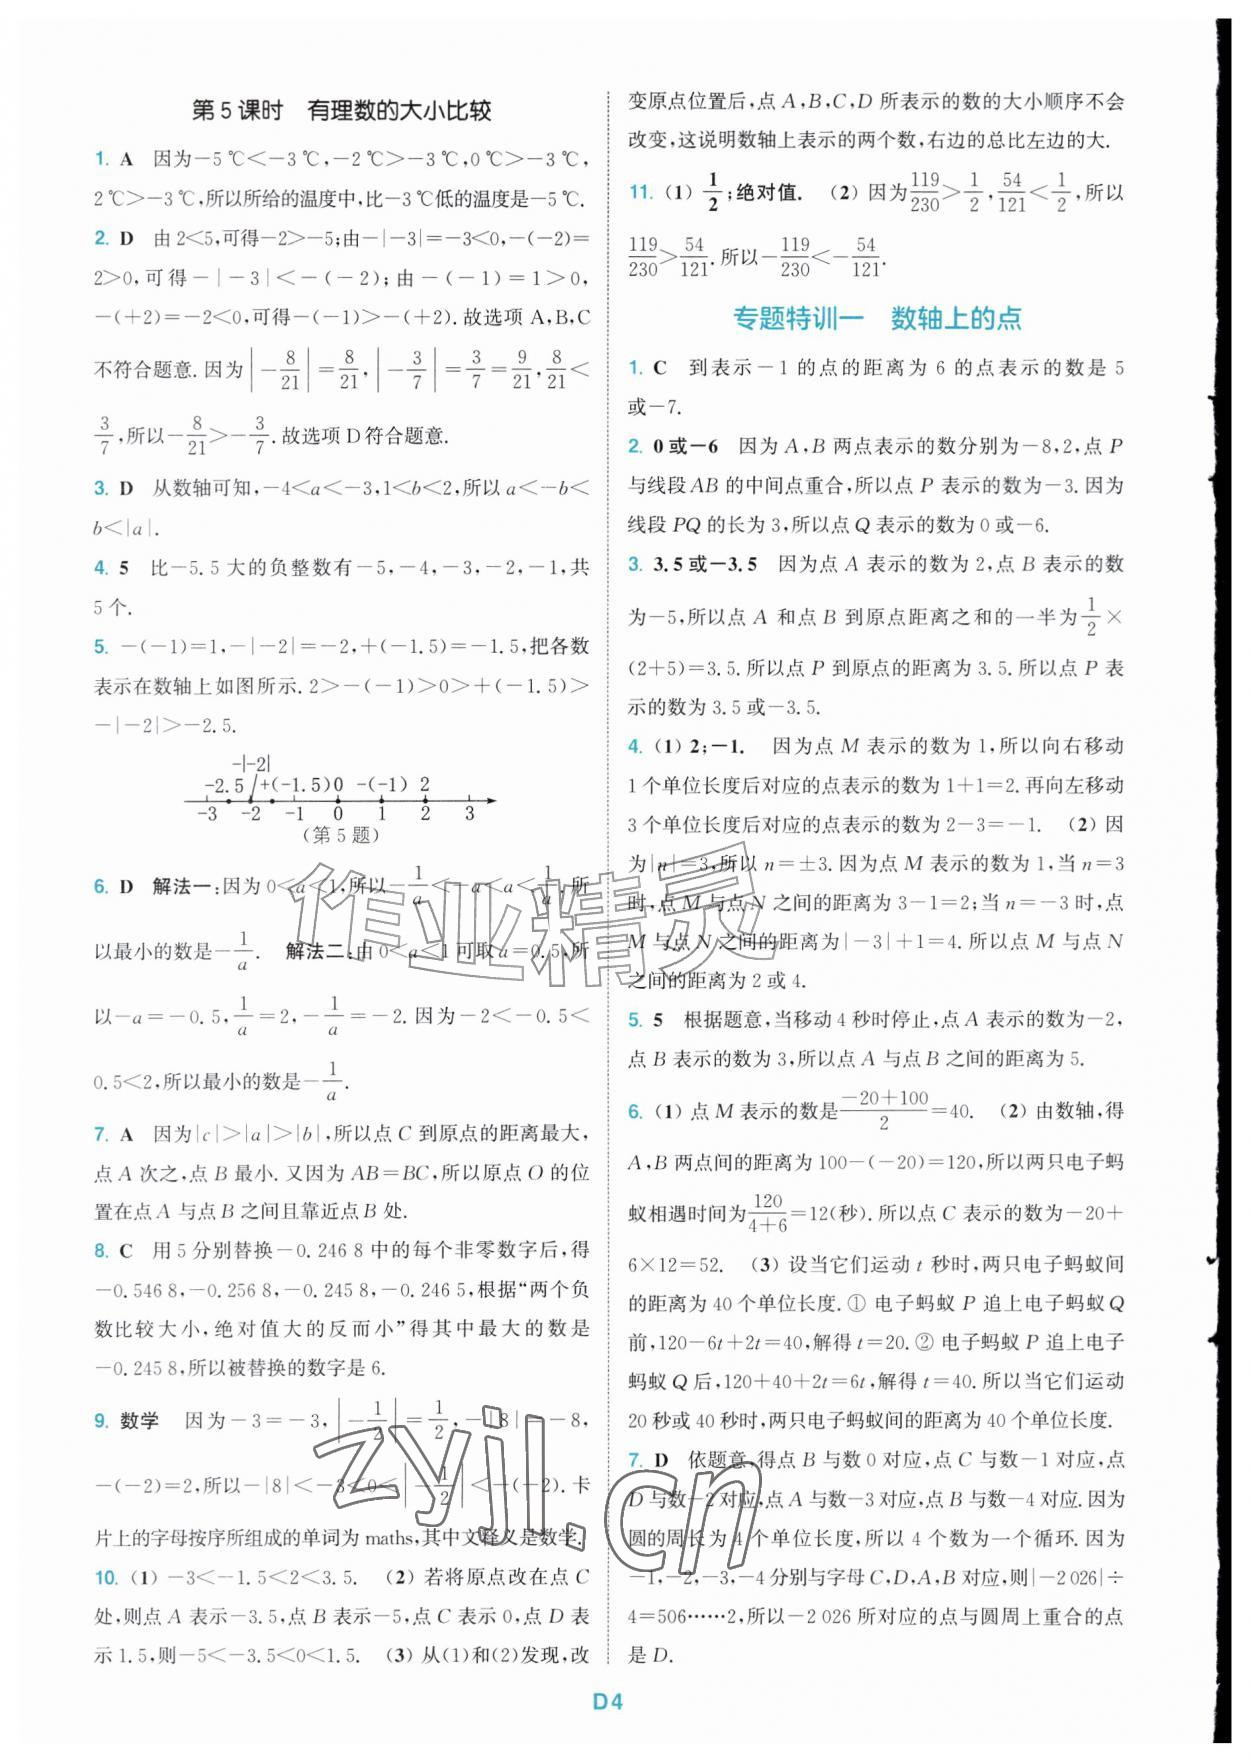 第5课时　有理数的大小比较
1. A　因为－5℃＜－3℃,－2℃＞－3℃,0℃＞－3℃,
2℃＞－3℃,所以所给的温度中,比－3℃低的温度是－5℃.
2. D　由2＜5,可得－2＞－5;由－|－3|＝－3＜0,－(－2)＝
2＞0,可得－|－3|＜－(－2);由－(－1)＝1＞0,
－(＋2)＝－2＜0,可得－(－1)＞－(＋2).故选项A,B,C
不符合题意.因为|－8/21|＝8/21,|－3/7|＝3/7＝9/21,8/21＜
3/7,所以－8/21＞－3/7.故选项D符合题意.
3. D　从数轴可知,－4＜a＜－3,1＜b＜2,所以a＜－b＜
b＜|a|.
4. 5　比－5.5大的负整数有－5,－4,－3,－2,－1,共
5个.
5. －(－1)＝1,－|－2|＝－2,＋(－1.5)＝－1.5,把各数
表示在数轴上如图所示.2＞－(－1)＞0＞＋(－1.5)＞
－|－2|＞－2.5.
-|-2|
-2.5 +(-1.5) 0 -(-1) 2
-3 -2 -1 0 1 2 3
(第5题)
6. D　解法一:因为0＜a＜1,所以－1/a＜－a＜a＜1/a.所
以最小的数是－1/a.　解法二:由0＜a＜1可取a＝0.5,所
以－a＝－0.5,1/a＝2,－1/a＝－2.因为－2＜－0.5＜
0.5＜2,所以最小的数是－1/a.
7. A　因为|c|＞|a|＞|b|,所以点C到原点的距离最大,
点A次之,点B最小.又因为AB＝BC,所以原点O的位
置在点A与点B之间且靠近点B处.
8. C　用5分别替换－0.2468中的每个非零数字后,得
－0.5468,－0.2568,－0.2458,－0.2465,根据“两个负
数比较大小,绝对值大的反而小”得其中最大的数是
－0.2458,所以被替换的数字是6.
9. 数学　因为－3＝－3,|－1/2|＝1/2,－|8|＝－8,
－(－2)＝2,所以－|8|＜－3＜0＜|－1/2|＜－(－2).卡
片上的字母按序所组成的单词为maths,其中文释义是数学.
10. (1) －3＜－1.5＜2＜3.5.　(2) 若将原点改在点C
处,则点A表示－3.5,点B表示－5,点C表示0,点D表
示1.5,则－5＜－3.5＜0＜1.5.　(3) 从(1)和(2)发现,改
变原点位置后,点A,B,C,D所表示的数的大小顺序不会
改变,这说明数轴上表示的两个数,右边的总比左边的大.
11. (1) 1/2;绝对值.　(2) 因为119/230＞1/2,54/121＜1/2,所以
119/230＞54/121.所以－119/230＜－54/121.
专题特训一　数轴上的点
1. C　到表示－1的点的距离为6的点表示的数是5
或－7.
2. 0或－6　因为A,B两点表示的数分别为－8,2,点P
与线段AB的中间点重合,所以点P表示的数为－3.因为
线段PQ的长为3,所以点Q表示的数为0或－6.
3. 3.5或－3.5　因为点A表示的数为2,点B表示的数
为－5,所以点A和点B到原点距离之和的一半为1/2×
(2＋5)＝3.5.所以点P到原点的距离为3.5.所以点P表
示的数为3.5或－3.5.
4. (1) 2;－1.　因为点M表示的数为1,所以向右移动
1个单位长度后对应的点表示的数为1＋1＝2.再向左移动
3个单位长度后对应的点表示的数为2－3＝－1.　(2) 因
为|n|＝3,所以n＝±3.因为点M表示的数为1,当n＝3
时,点M与点N之间的距离为3－1＝2;当n＝－3时,点
M与点N之间的距离为|－3|＋1＝4.所以点M与点N
之间的距离为2或4.
5. 5　根据题意,当移动4秒时停止,点A表示的数为－2,
点B表示的数为3,所以点A与点B之间的距离为5.
6. (1) 点M表示的数是(－20＋100)/2＝40.　(2) 由数轴,得
A,B两点间的距离为100－(－20)＝120,所以两只电子蚂
蚁相遇时间为120/(4＋6)＝12(秒).所以点C表示的数为－20＋
6×12＝52.　(3) 设当它们运动t秒时,两只电子蚂蚁间
的距离为40个单位长度.① 电子蚂蚁P追上电子蚂蚁Q
前,120－6t＋2t＝40,解得t＝20.② 电子蚂蚁P追上电子
蚂蚁Q后,120＋40＋2t＝6t,解得t＝40.所以当它们运动
20秒或40秒时,两只电子蚂蚁间的距离为40个单位长度.
7. D　依题意,得点B与数0对应,点C与数－1对应,点
D与数－2对应,点A与数－3对应,点B与数－4对应.因为
圆的周长为4个单位长度,所以4个数为一个循环.因为
－1,－2,－3,－4分别与字母C,D,A,B对应,则|－2026|÷
4＝506……2,所以－2026所对应的点与圆周上重合的点
是D.
作业精灵
zyjl.cn
D4